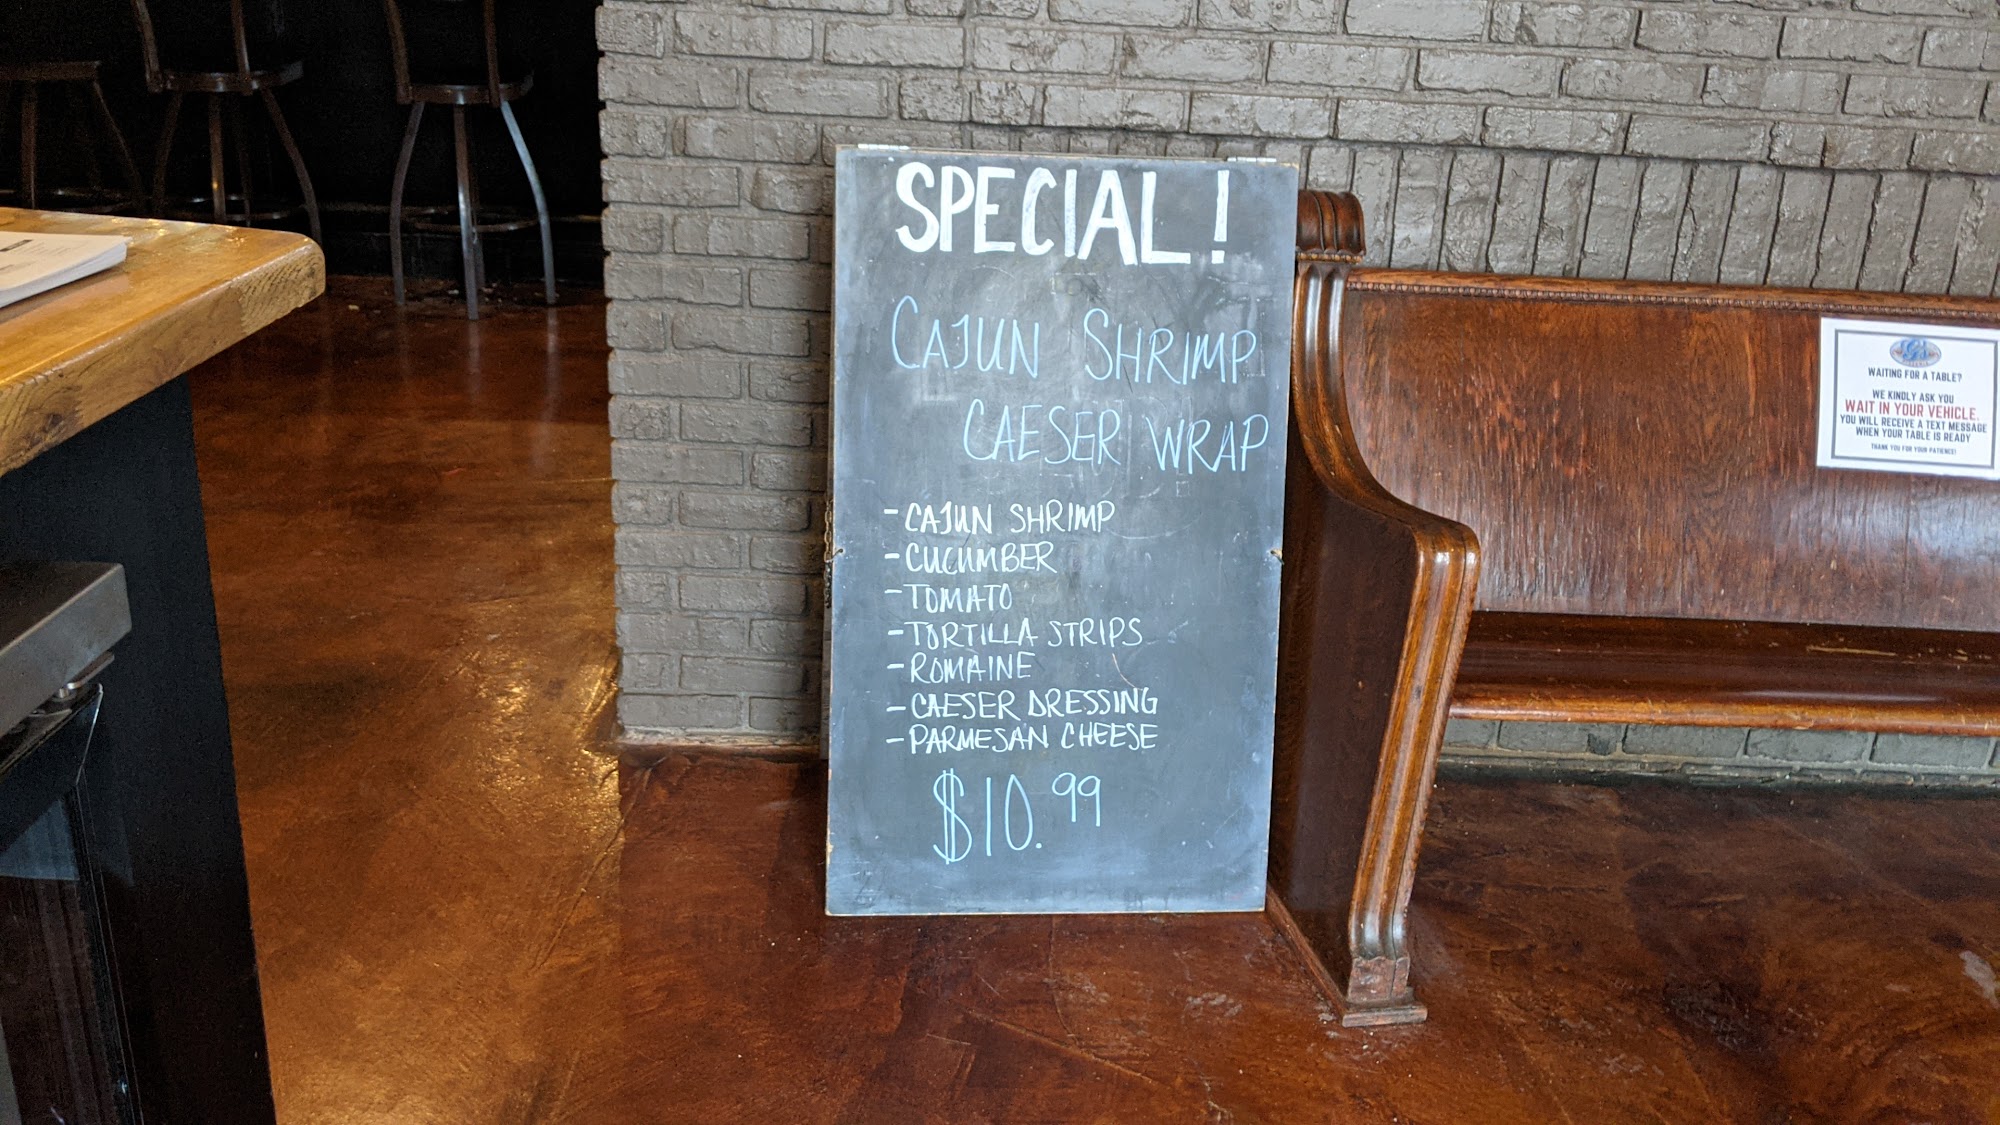 SPECIAL!
CAJUN SHRIMP
CAESER WRAP
- CAJUN SHRIMP
- CUCUMBER
- TOMATO
- TORTILLA STRIPS
- ROMAINE
- CAESER DRESSING
- PARMESAN CHEESE
$10.99
G's
WAITING FOR A TABLE?
WE KINDLY ASK YOU
WAIT IN YOUR VEHICLE.
YOU WILL RECEIVE A TEXT MESSAGE
WHEN YOUR TABLE IS READY
THANK YOU FOR YOUR PATIENCE!